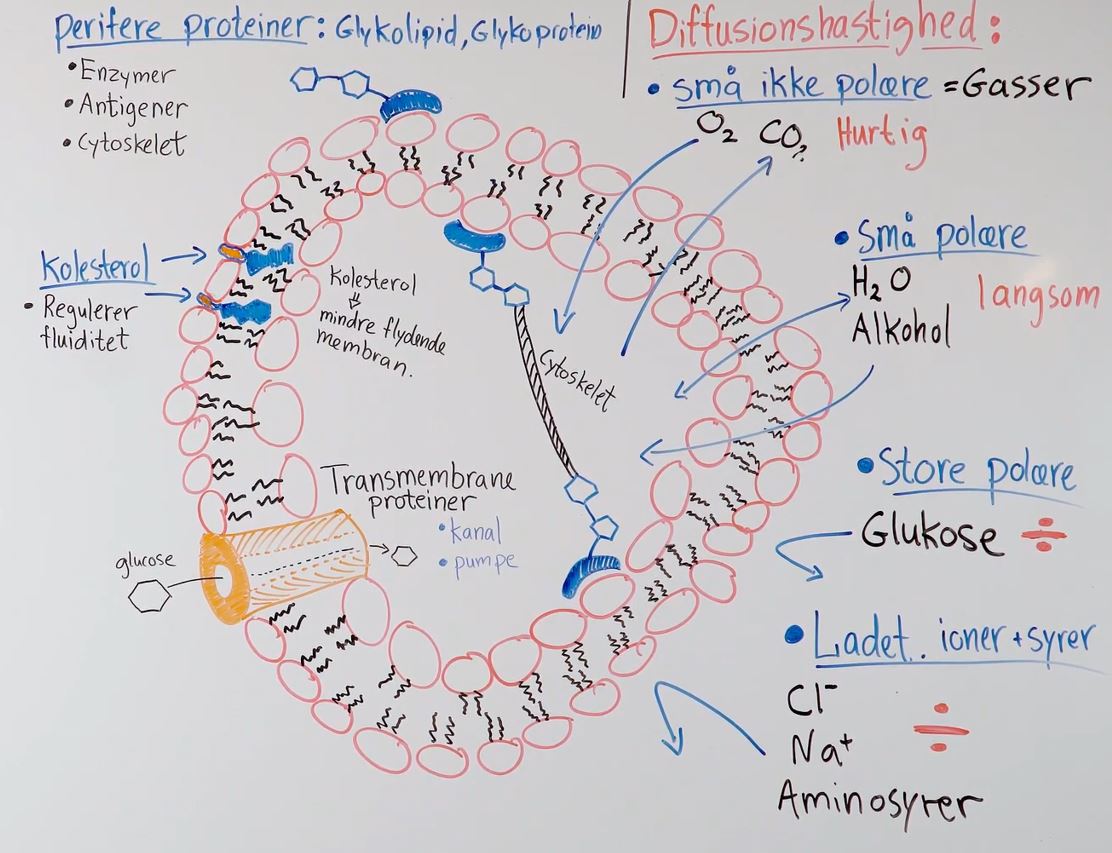 Perifere proteiner: Glykolipid, Glykoprotein
• Enzymer
• Antigener
• Cytoskelet
Diffusionshastighed:
• små ikke polære = Gasser
O₂ CO₂ Hurtig
• Små polære
H₂O
langsom
Alkohol
• Store polære
Glukose ÷
• Ladet. ioner + syrer
Cl⁻
Na⁺
÷
Aminosyrer
Kolesterol
• Regulerer
fluiditet
Kolesterol
⇓
mindre flydende
membran.
Cytoskelet
Transmembrane
proteiner
• kanal
• pumpe
glucose